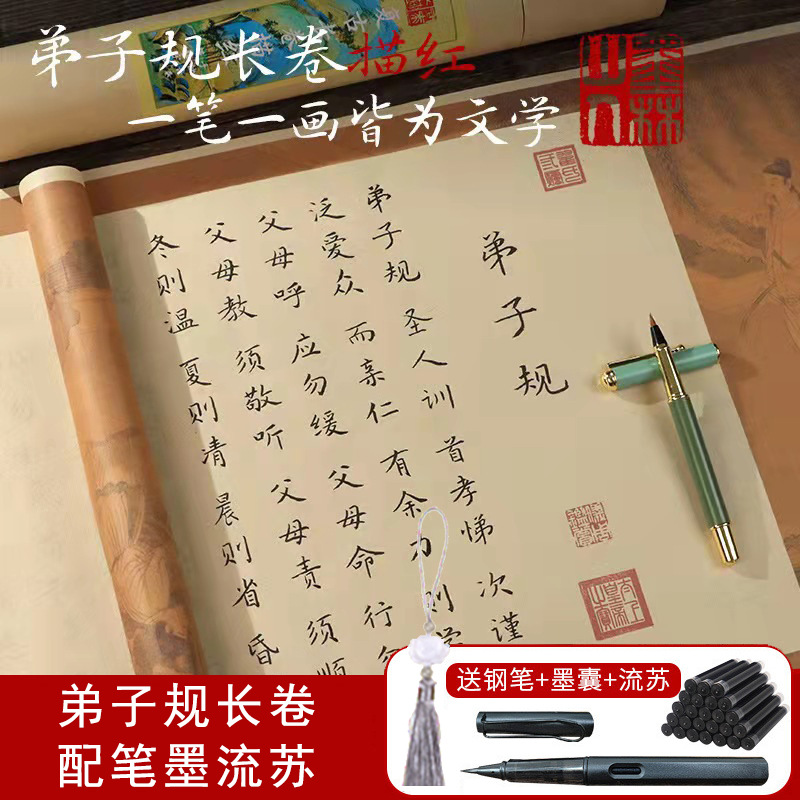 弟子规长卷描红
一笔一画皆为文学
弟子规
弟子规 圣人训 首孝悌 次谨
泛爱众 而亲仁 有余力 则学
父母呼 应勿缓 父母命 行勿
父母教 须敬听 父母责 须顺
冬则温 夏则清 晨则省 昏
弟子规长卷
配笔墨流苏
送钢笔+墨囊+流苏